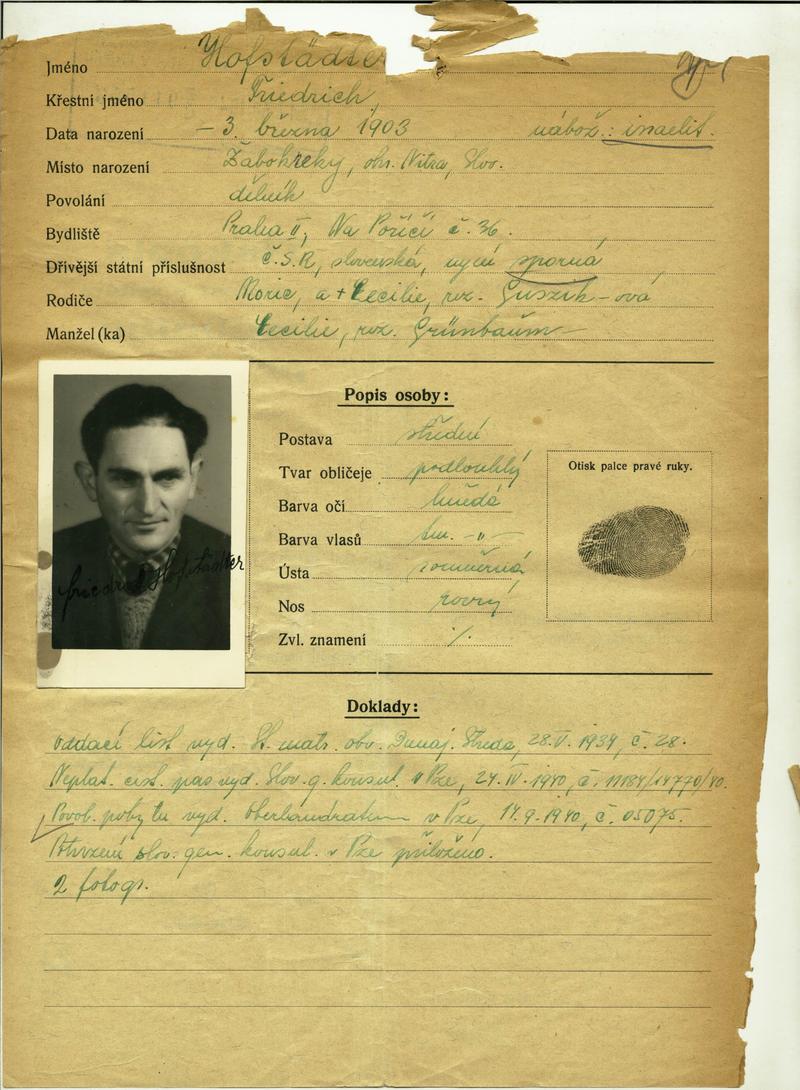 Jméno Hofstädter
Křestní jméno Friedrich,
Data narození – 3. března 1903 nábož.: israelit.
Místo narození Žabokreky, okr. Nitra, Slov.
Povolání dělník
Bydliště Praha II, Na Poříčí č. 36.
Dřívější státní příslušnost Č.S.R, slovenská, nyní sporná
Rodiče Moric, a + Cecilie, roz. Guszik-ová
Manžel (ka) Cecilie, roz. Grünbaum
Popis osoby:
Postava střední
Tvar obličeje podlouhlý
Barva očí hnědá
Barva vlasů tm. -"-
Ústa souměrná
Nos rovný
Zvl. znamení ./.
Otisk palce pravé ruky.
Friedrich Hofstädter
Doklady:
oddací list vyd. St. matr. obv. Dunaj. Streda, 28.V.1934, č. 28.
Neplat. cest. pas vyd. Slov. g. konsul. v Pze, 24.IV.1940, č. 11184/14770/40.
Povol. pobytu vyd. Oberlandratem v Pze, 14.9.1940, č. 05075.
Potvrzení slov. gen. konsul. v Pze přiloženo.
2 fotogr.